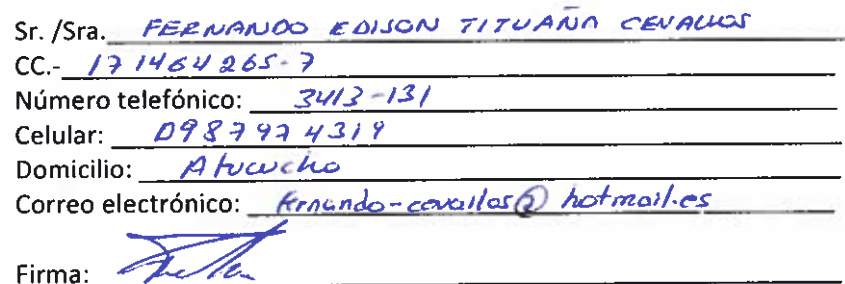 Sr. /Sra. FERNANDO EDISON TITUAÑA CEVALLOS
CC.- 171464265-7
Número telefónico: 3413-131
Celular: 0987974319
Domicilio: Atucucho
Correo electrónico: fernando-cevallos@hotmail.es
Firma: